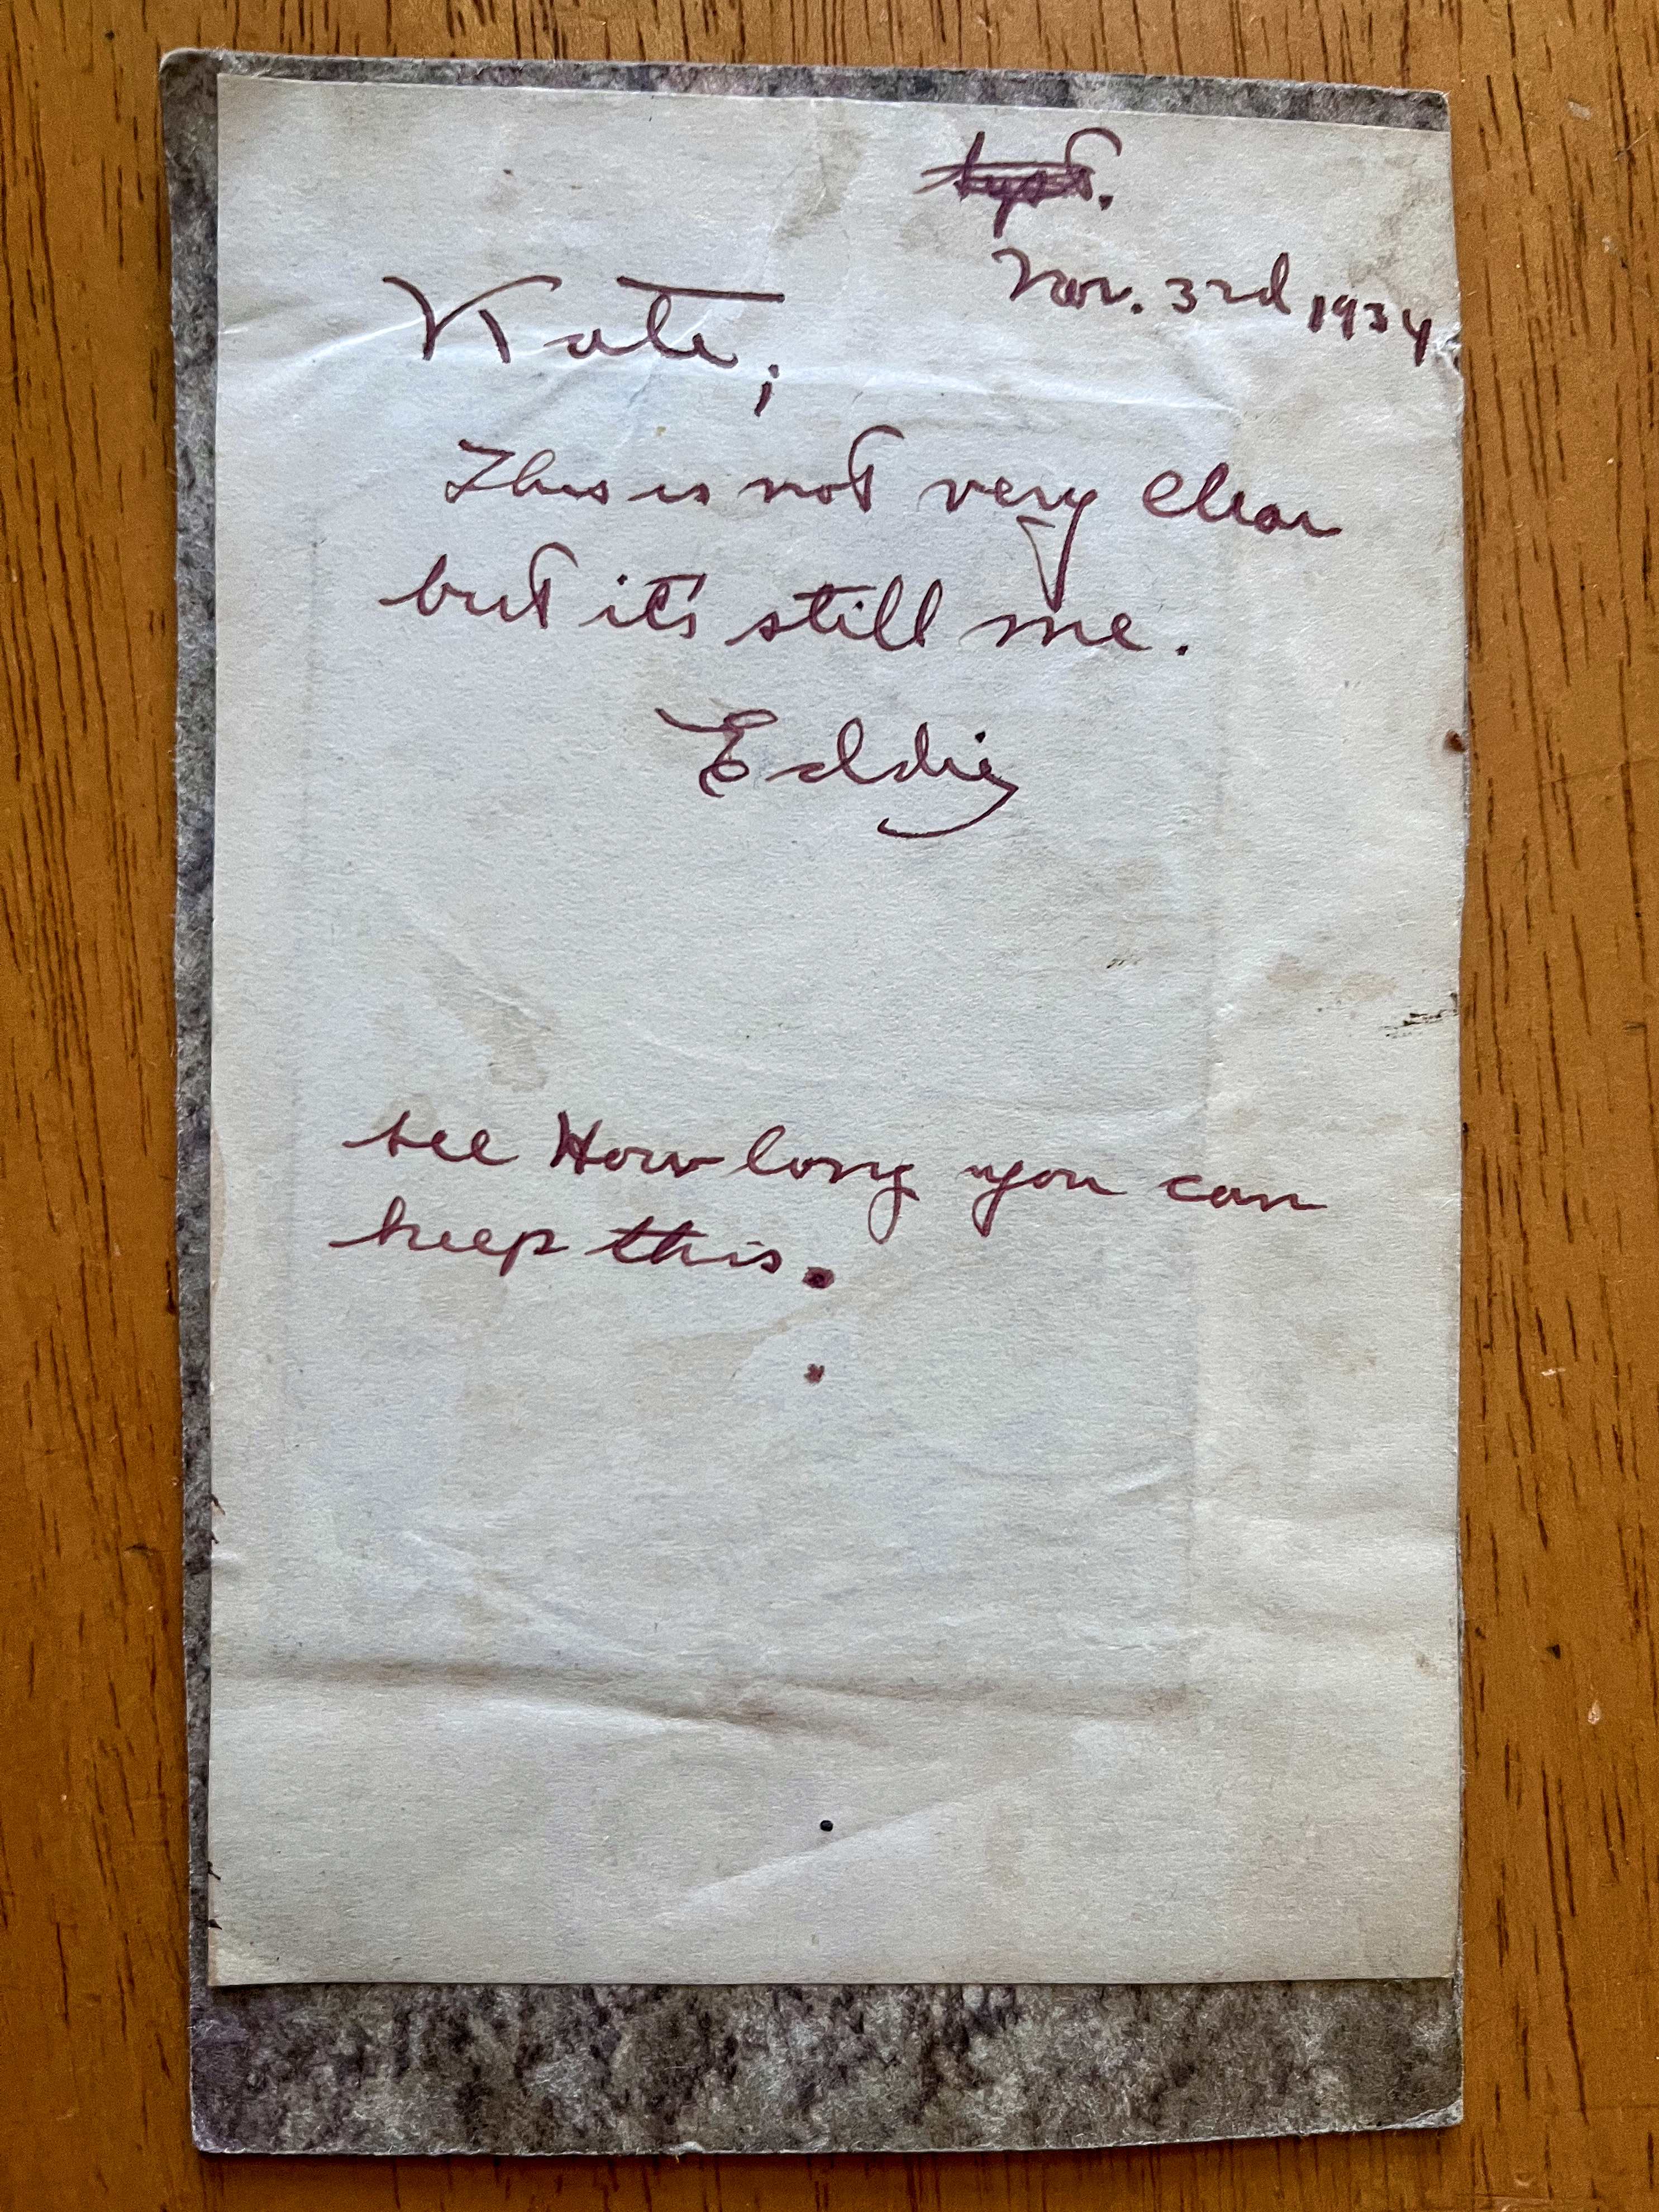 Nov. 3rd 1934
Kate;
This is not very clear
but it's still me.
Eddie
see How long you can
keep this.